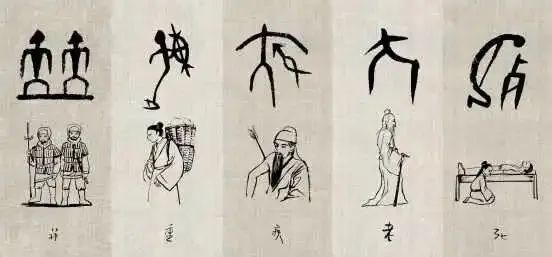 并 重 疾 老 死